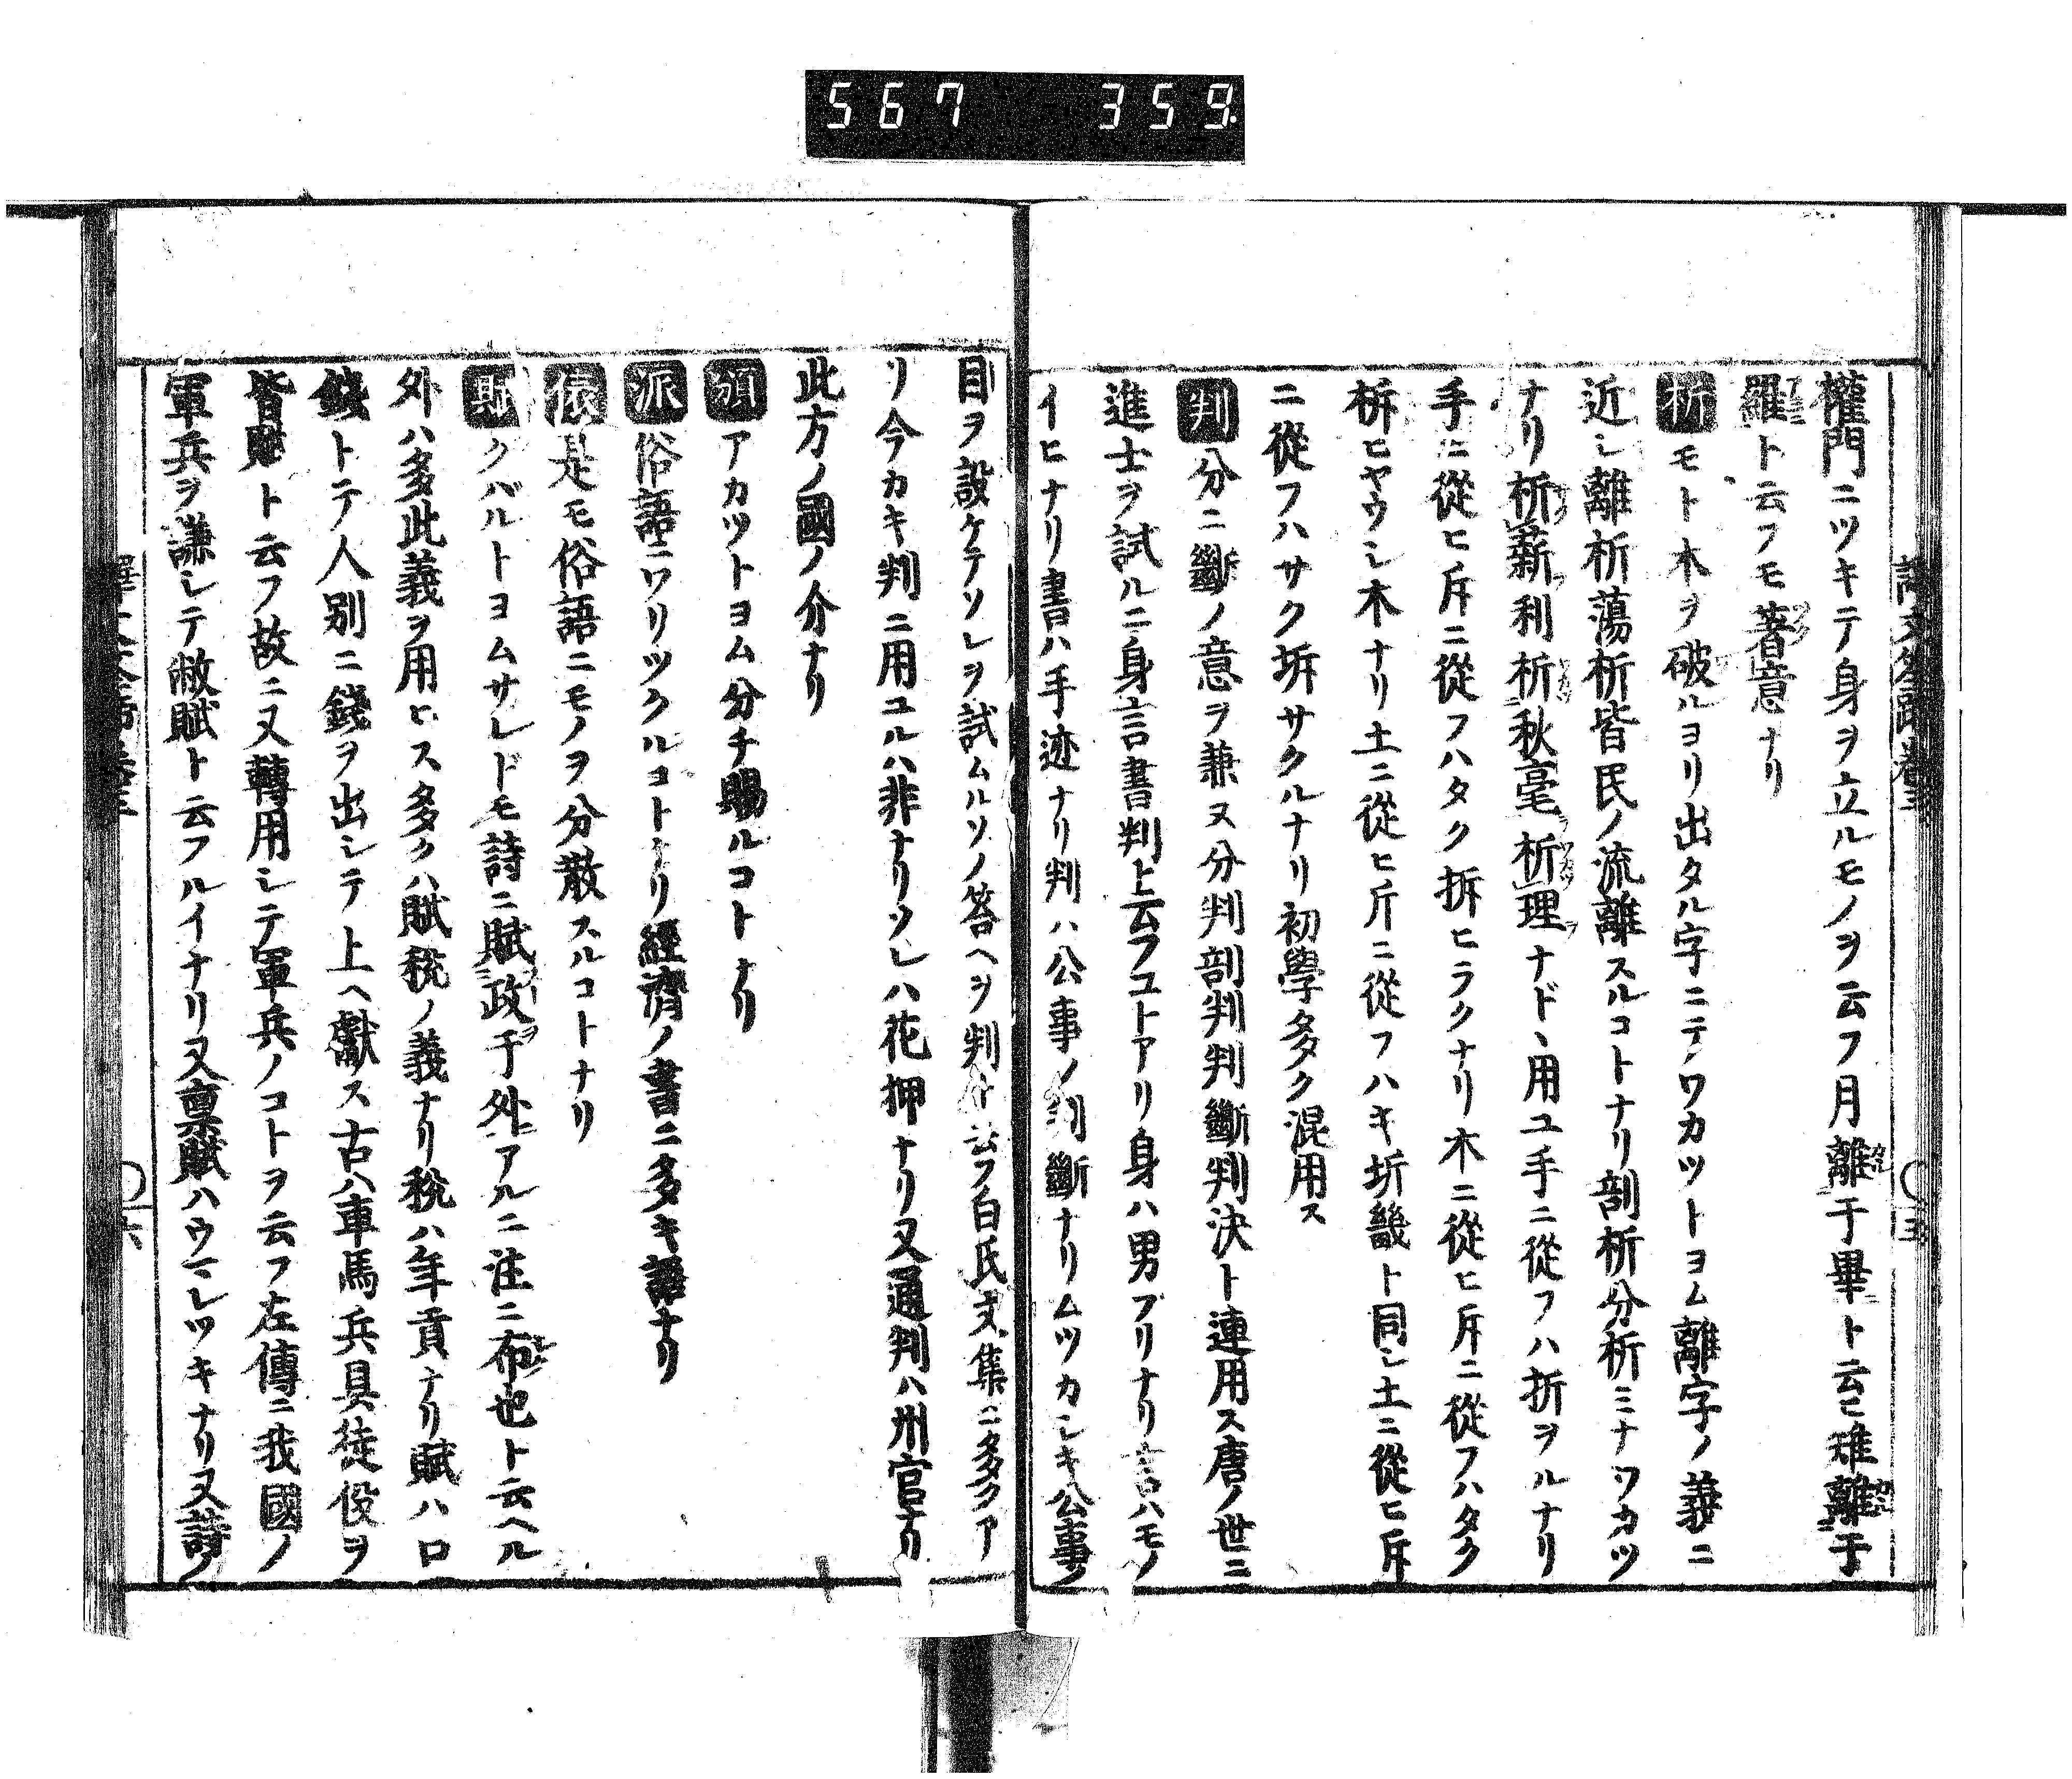 567 359
權門ニツキテ身ヲ立ルモノヲ云フ月離于畢ト云ヒ雉離于
羅ト云フモ著意ナリ
析モト木ヲ破ルヨリ出タル字ニテワカツトヨム離字ノ義ニ
近シ離析蕩析皆民ノ流離スルコトナリ剖析分析ミナワカツ
ナリ析薪利析秋毫析理ナドヽ用ユ手ニ從フハ折ヲルナリ
手ニ從ヒ斥ニ從フハタク拆ヒラクナリ木ニ從ヒ斥ニ從フハタク
柝ヒヤウシ木ナリ土ニ從ヒ斤ニ從フハキ圻畿ト同シ土ニ從ヒ斥
ニ從フハサク坼サクルナリ初學多ク混用ス
判分ニ斷ノ意ヲ兼ヌ分判剖判判斷判決ト連用ス唐ノ世ニ
進士ヲ試ルニ身言書判ト云フコトアリ身ハ男ブリナリ言ハモノ
イヒナリ書ハ手迹ナリ判ハ公事ノ判斷ナリムツカシキ公事ノ
目ヲ設ケテソレヲ試ムルソノ答ヘヲ判ト云フ白氏文集ニ多クア
リ今カキ判ニ用ユルハ非ナリソレハ花押ナリ又通判ハ州官ナリ
此方ノ國ノ介ナリ
頒アカツトヨム分チ賜ルコトナリ
派俗語ニワリツクルコトナリ經濟ノ書ニ多キ語ナリ
俵是モ俗語ニモノヲ分散スルコトナリ
賦クバルトヨムサレドモ詩ニ賦政于外アルニ注ニ布也ト云ヘル
外ハ多此義ヲ用ヒス多クハ賦稅ノ義ナリ稅ハ年貢ナリ賦ハ口
錢トテ人別ニ錢ヲ出シテ上ヘ獻ス古ハ車馬兵具徒役ヲ
皆賦ト云フ故ニ又轉用シテ軍兵ノコトヲ云フ左傳ニ我國ノ
軍兵ヲ謙シテ敝賦ト云フルイナリ又稟賦ハウマレツキナリ又詩ノ
六